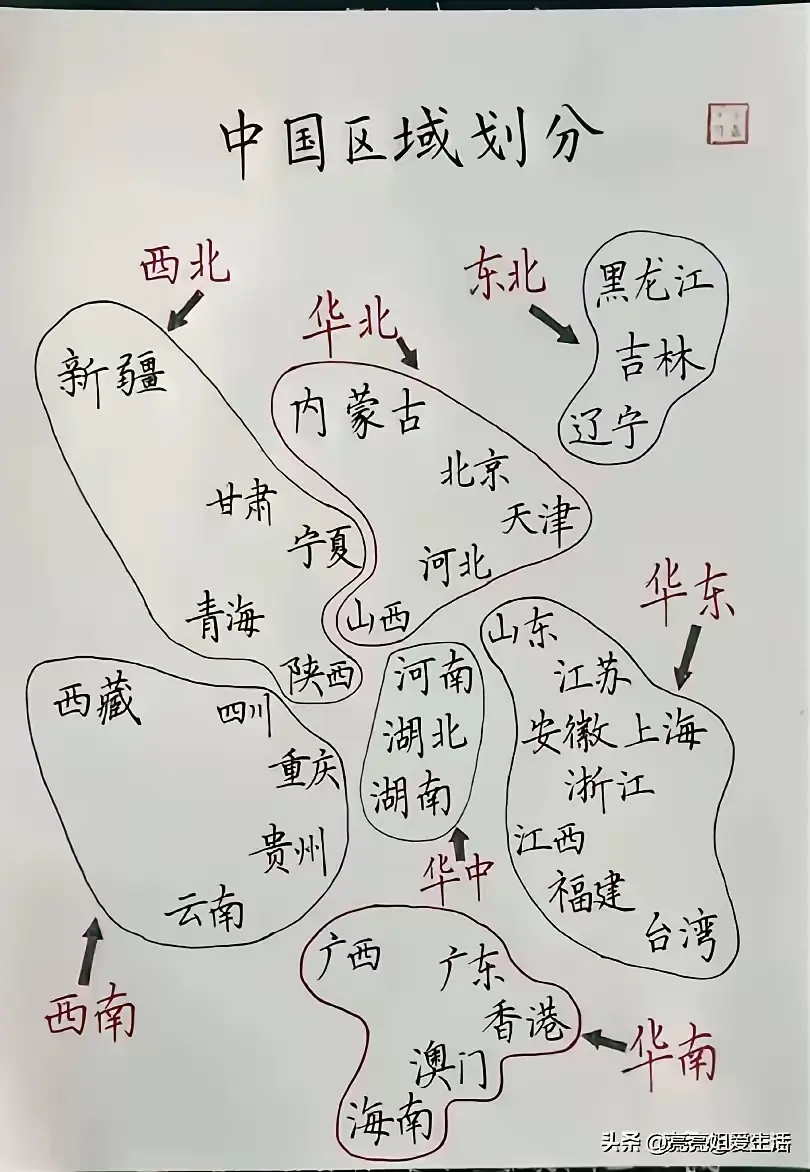 中国区域划分
西北
新疆
甘肃
宁夏
青海
陕西
华北
内蒙古
北京
天津
河北
山西
东北
黑龙江
吉林
辽宁
华东
山东
江苏
安徽 上海
浙江
江西
福建
台湾
华中
河南
湖北
湖南
西南
西藏
四川
重庆
贵州
云南
华南
广西
广东
香港
澳门
海南
头条 @亮亮姐爱生活